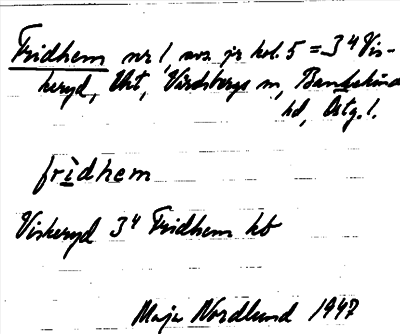 Fridhem nr 1, avs. jr kol. 5 = 3⁴ Vis-
keryd, Uht, Vårdsbergs sn, Bankekinds
hd, Östg. l.
frìdhem
Viskeryd 3⁴ Fridhem kb
Maja Nordlund 1947